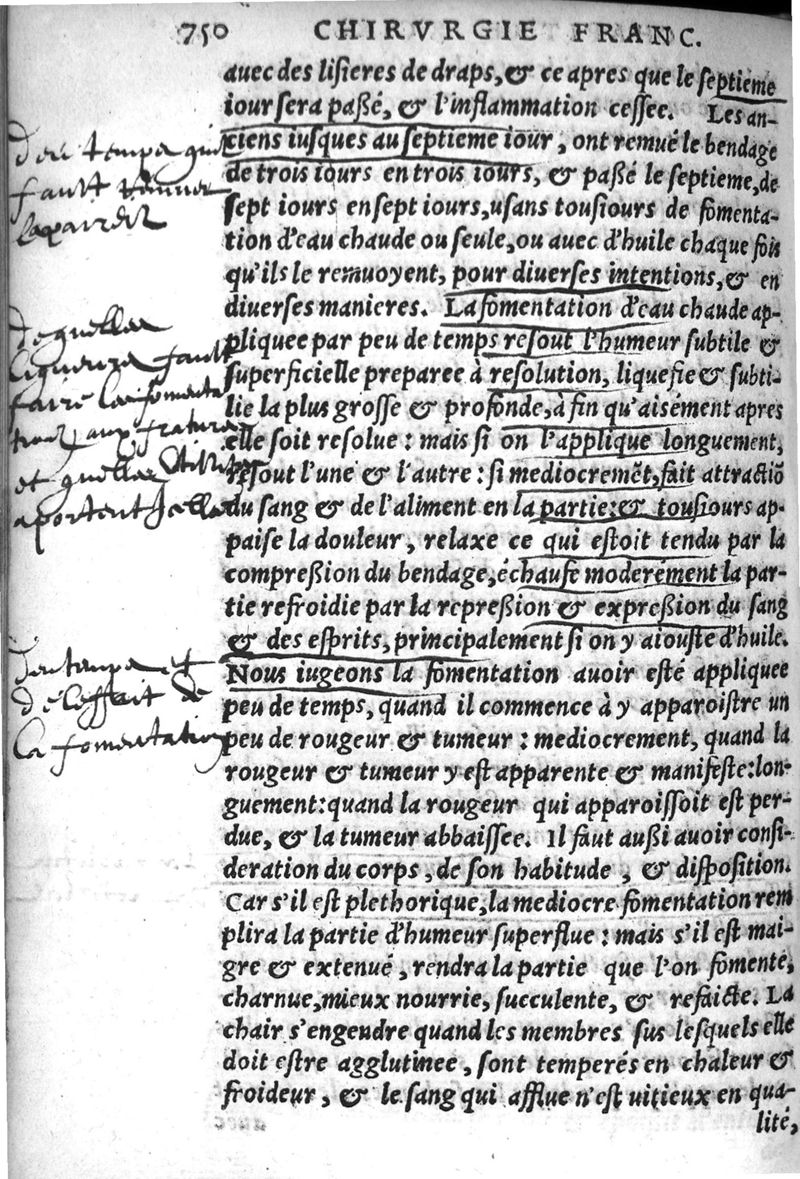 750 CHIRVRGIE FRANC.
auec des lisieres de draps, & ce apres que le septieme
iour sera passé, & l'inflammation cessee. Les an-
ciens iusques au septieme iour, ont remué le bendage
de trois iours en trois iours, & passé le septieme, de
sept iours en sept iours, usans tousiours de fomenta-
tion d'eau chaude ou seule, ou auec d'huile chaque fois
qu'ils le remuoyent, pour diuerses intentions, & en
diuerses manieres. La fomentation d'eau chaude ap-
pliquee par peu de temps resout l'humeur subtile &
superficielle preparee à resolution, liquefie & subti-
lie la plus grosse & profonde, à fin qu'aisément apres
elle soit resolue : mais si on l'applique longuement,
resout l'une & l'autre : si mediocremẽt, fait attractiõ
du sang & de l'aliment en la partie: & tousiours ap-
paise la douleur, relaxe ce qui estoit tendu par la
compression du bendage, échaufe moderément la par-
tie refroidie par la repression & expression du sang
& des esprits, principalement si on y aiouste d'huile.
Nous iugeons la fomentation auoir esté appliquee
peu de temps, quand il commence à y apparoistre un
peu de rougeur & tumeur : mediocrement, quand la
rougeur & tumeur y est apparente & manifeste: lon-
guement: quand la rougeur qui apparoissoit est per-
due, & la tumeur abbaissee. Il faut aussi auoir consi-
deration du corps, de son habitude, & disposition.
Car s'il est plethorique, la mediocre fomentation rem
plira la partie d'humeur superflue : mais s'il est mai-
gre & extenué, rendra la partie que l'on fomente,
charnue, mieux nourrie, succulente, & refaicte. La
chair s'engendre quand les membres sus lesquels elle
doit estre agglutinee, sont temperés en chaleur &
froideur, & le sang qui afflue n'est uitieux en qua-
lité,
temps
fault
desquelles
fault
faire la fomenta
aux
et quelles
aportent
temps et
de leffait de
la fomentation